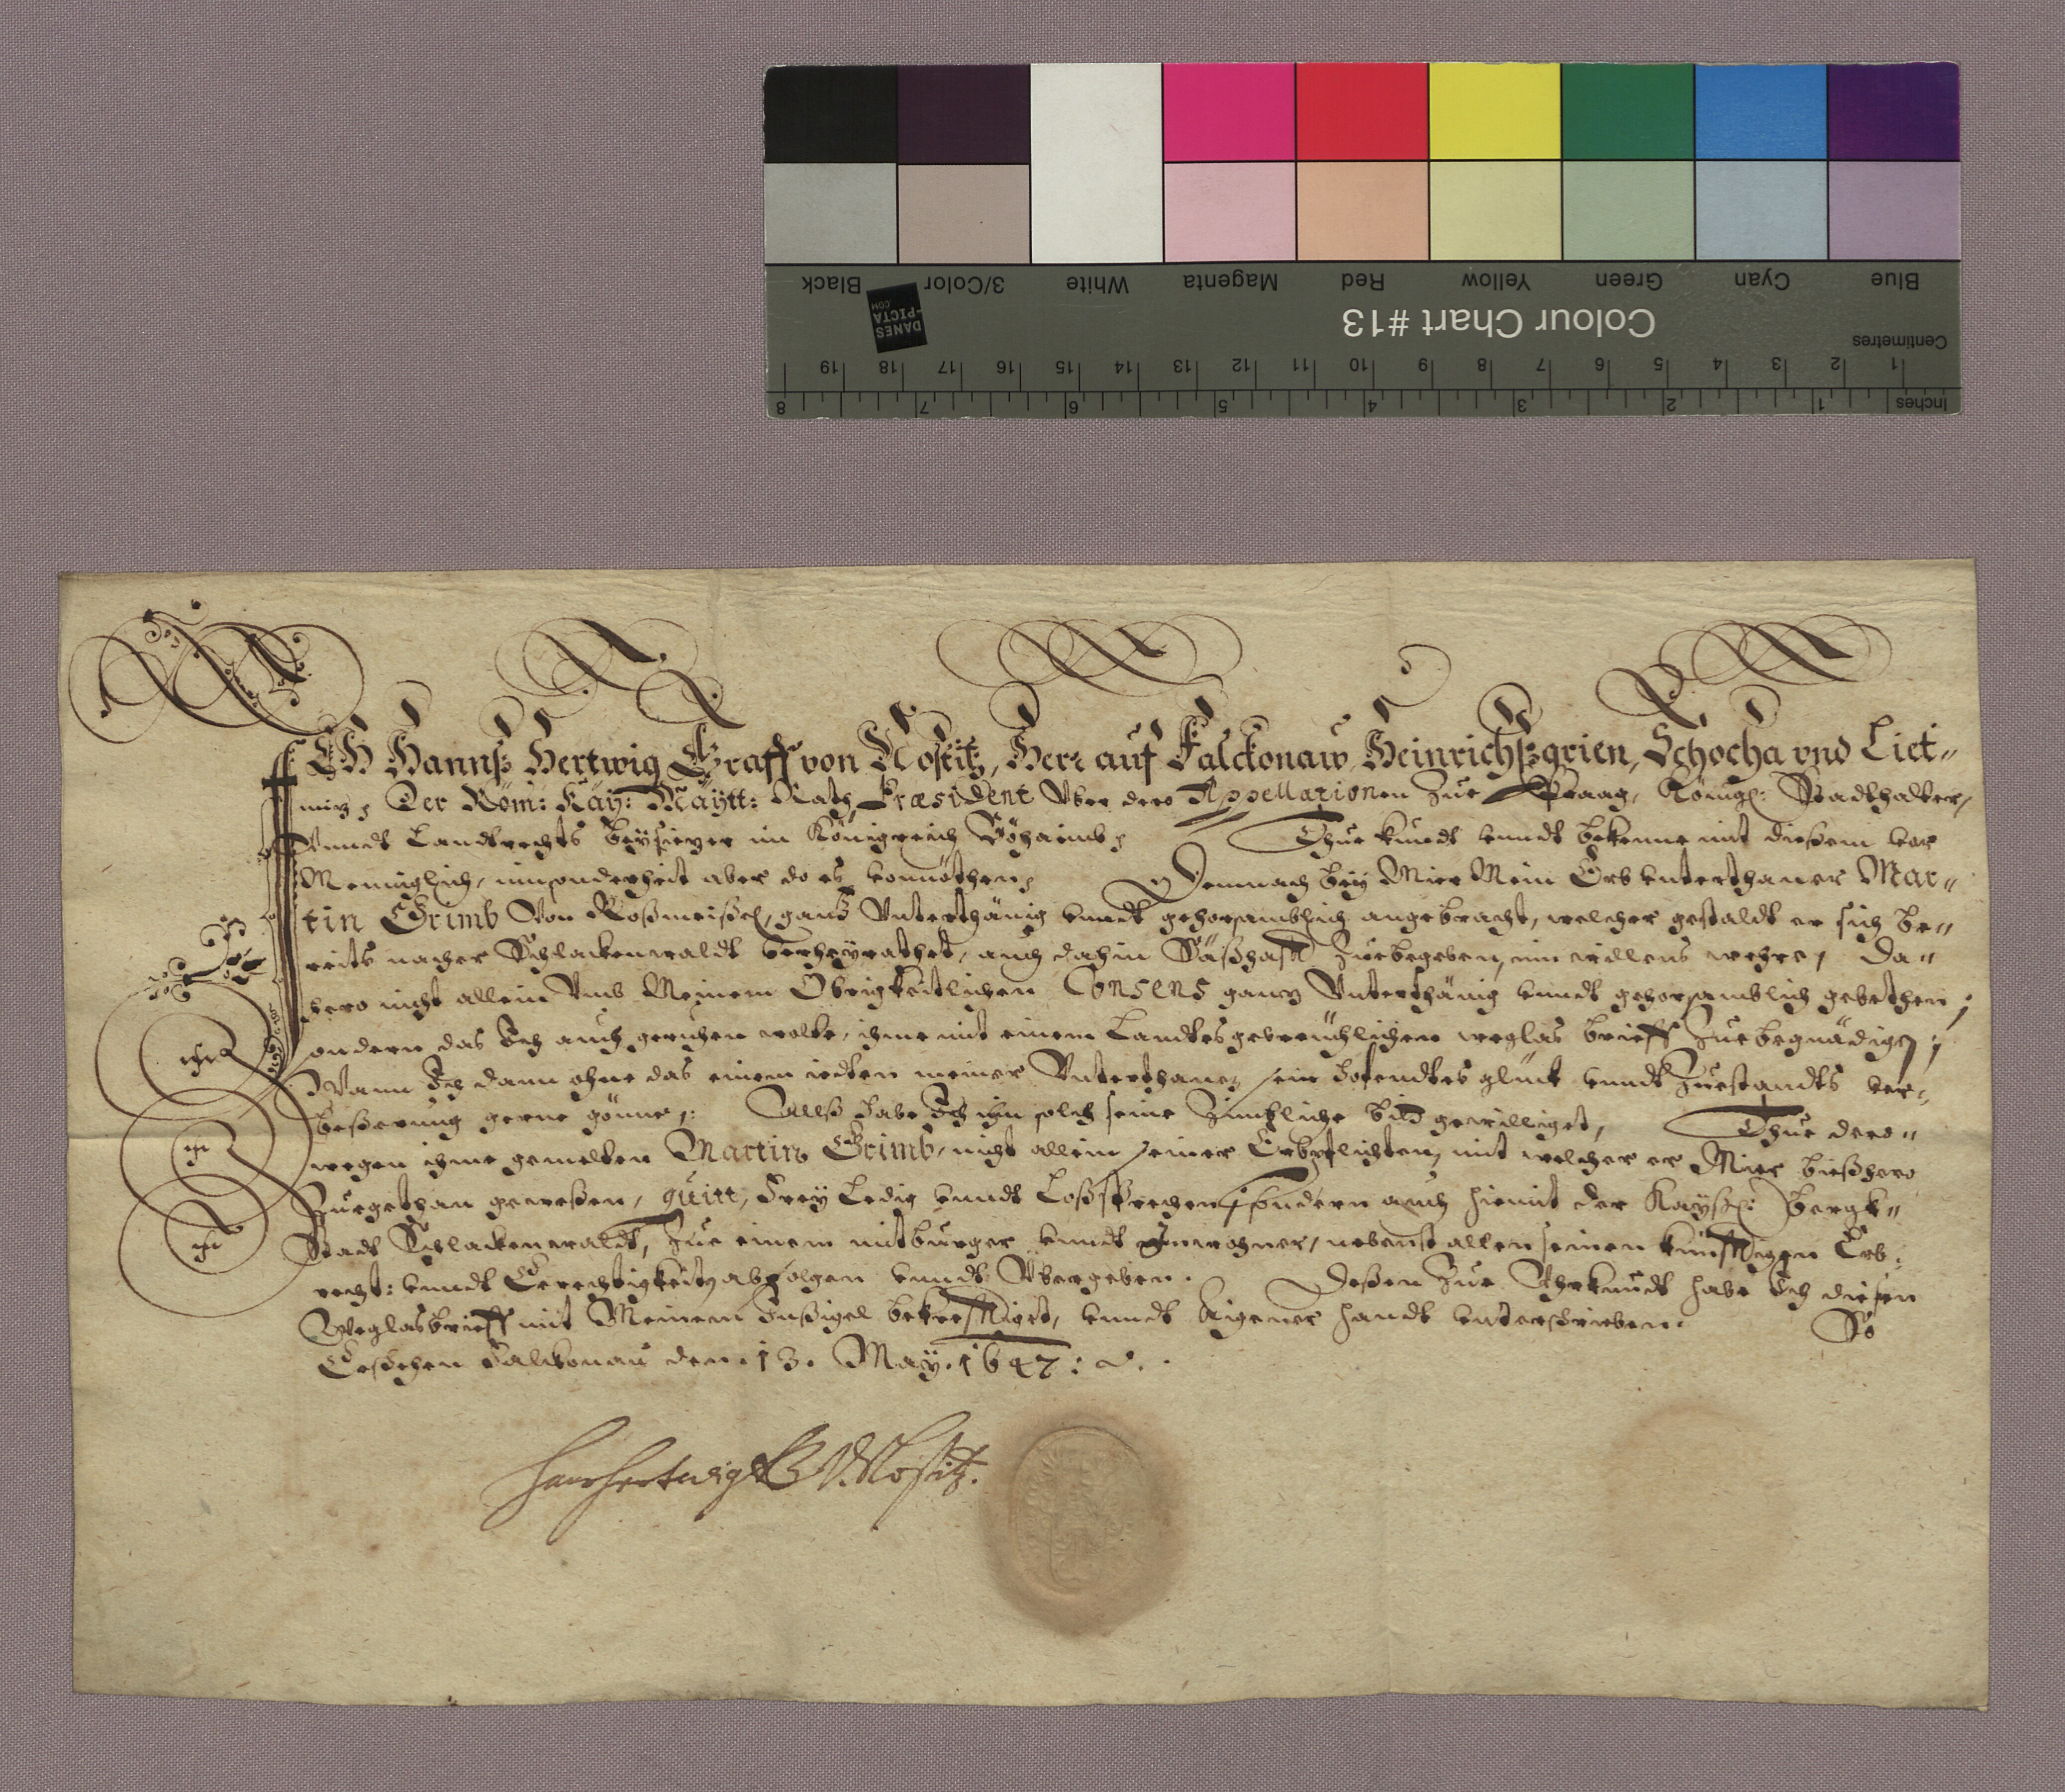 Blue Cyan Green Yellow Red Magenta White 3/Color Black
Colour Chart #13
DANES
-PICTA
.COM
Centimetres
1 2 3 4 5 6 7 8 9 10 11 12 13 14 15 16 17 18 19
Inches 1 2 3 4 5 6 7 8
ICH Hannß Hertwig Graff von Nostitz, Herr auf Falckonaw, Heinrichßgrien, Schocha vnd Liet-
miz, Der Röm: Kay: Maytt: Rath, Præsident Vber dero Appellationen Zue Praag, Königl: Stadthalter,
Vnndt Landtrechts Beysitzer im Königreich Böhaimb, Thue kundt vnndt bekenne mit dießem vor
Menniglich, innsonderheit aber do es vonnöthen, Demnach bey Mier Mein Erb vnterthaner Mar-
tin Grimb Von Roßmeißel, gantz Vnterthänig vnndt gehorsamblich angebracht, welcher gestaldt er sich be-
reits nacher Schlackenwaldt verheyrathet, auch dahin Säßhafft Zuebegeben, im willens wehre, Da-
hero nicht allein Vmb Meinem Obrigkeitlichen Consens gantz Vnterthänig vnndt gehorsamblich gebethen,
sondern das Ich auch geruhen wolte, ihme mit einem Landtsgebreuchlichen weglas brieff Zuebegnädigen,
Wann Ich dann ohne das einem iedten meiner Vnterthanen sein Hofendtes glück vnndt Zuestandts ver-
beßerung gerne gönne, Allß habe Ich ihn solch seine Zimbliche bitt gewilliget, Thue dero-
wegen ihme gemelten Martin Grimb, nicht allein seiner Erbpflichten, mit welcher er Mier bießhero
Zuegethan geweßen, quitt, Frey Ledig vnndt Loßsprechen, sondern auch hiemit der Kayßl: Bergk-
Stadt Schlackenwaldt, Zue einem mitburger vnndt Innwohner, nebenst allen seinen künfftigen Erb-
recht: vnndt Gerechtigkeit, abfolgen vnndt Vbergeben. Deßen Zue Vhrkundt habe Ich dießen
Weglasbrieff mit Meinem Inßigel bekrefftiget, vnndt Aigener handt vnterschrieben. So
Geschehen Falckonau den. 13. May. 1647:
Hanß Hertwig G V. Nostitz.